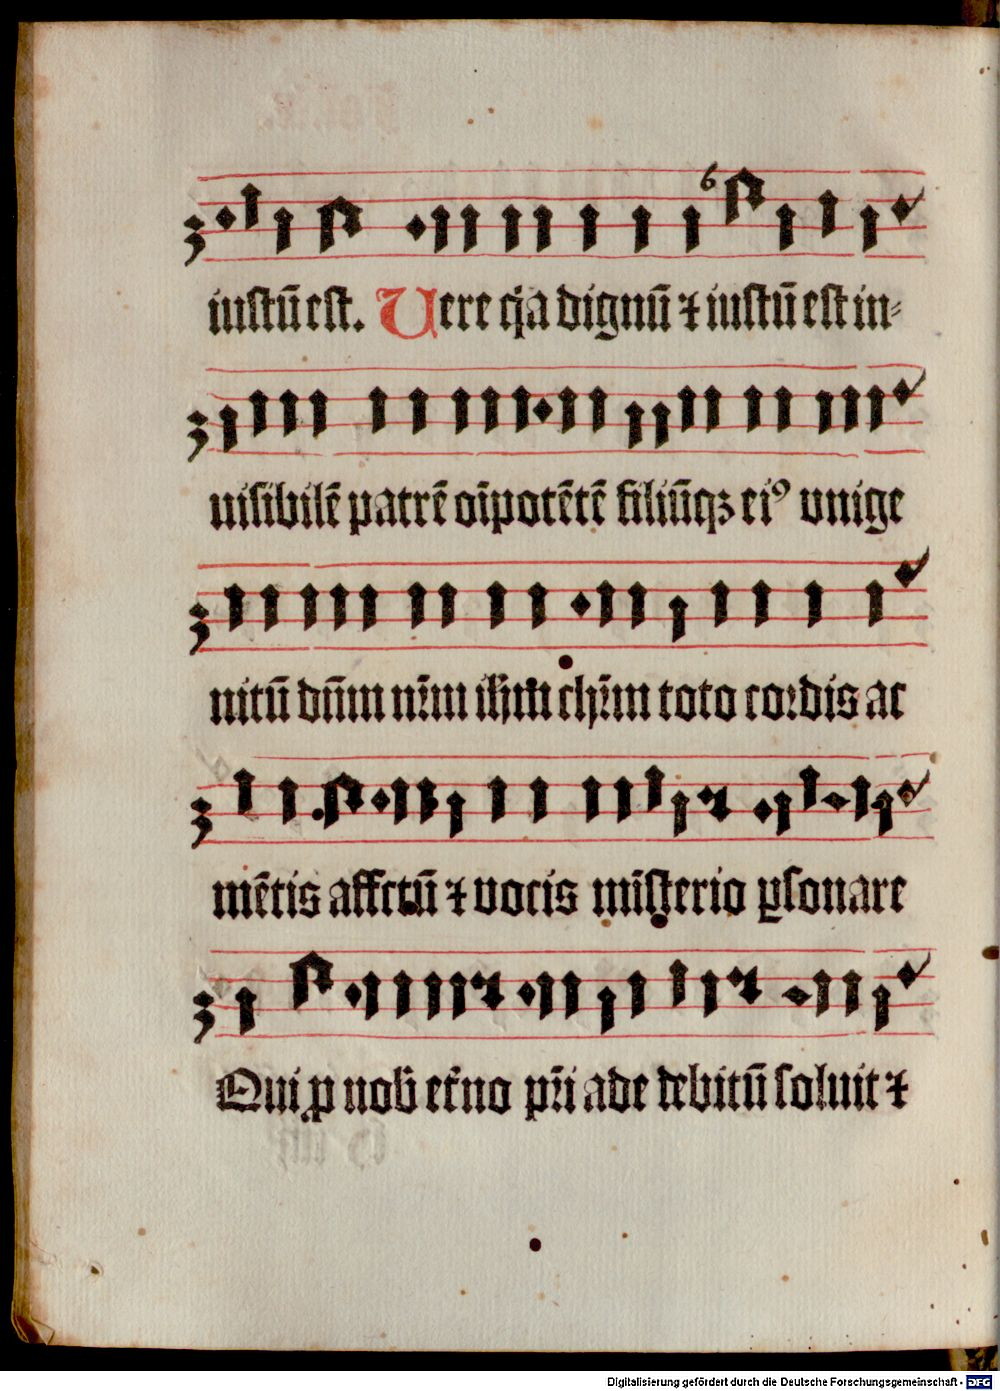 6
iustū est. Uere q̓a dignū ⁊ iustū est in⸗
uisibilē patrē oīpotētē filiūqꝫ eiꝰ vnige
nitū dn̄m nr̄m ih̄m chr̄m toto cordis ac
mētis affectū ⁊ vocis mīsterio ꝑsonare
Qui ꝓ nob̄ et̓no pr̄i ade debitū soluit ⁊
Digitalisierung gefördert durch die Deutsche Forschungsgemeinschaft - DFG